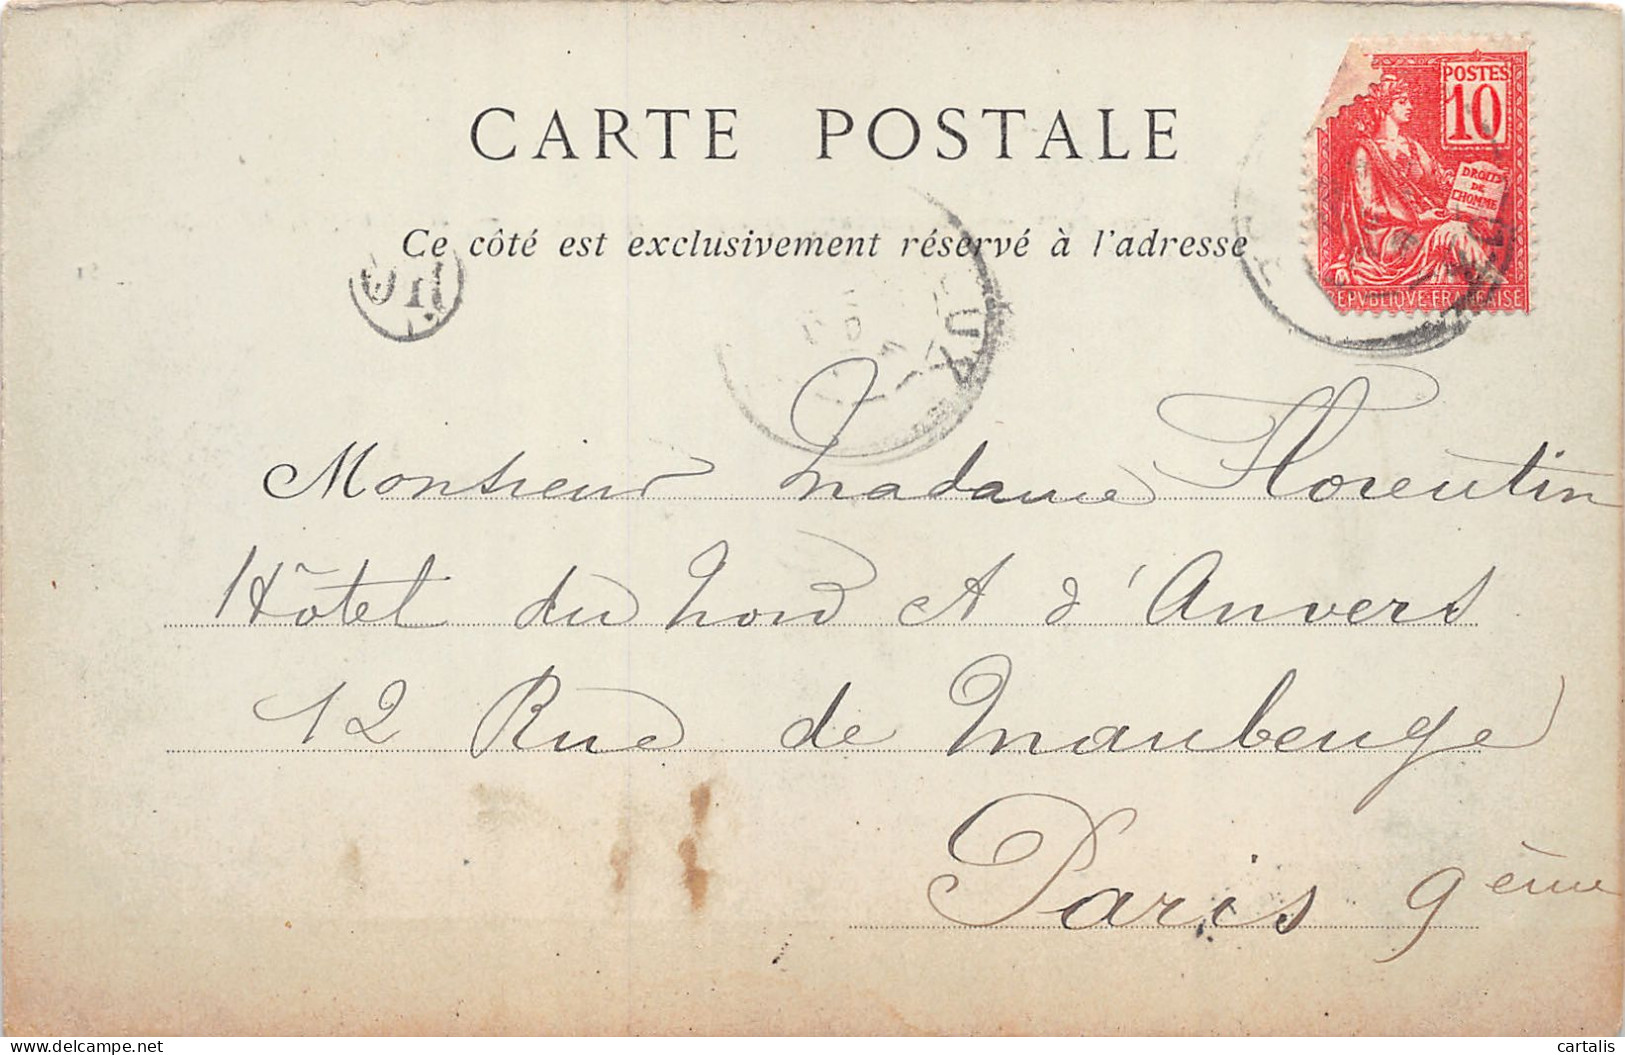 CARTE POSTALE
Ce côté est exclusivement réservé à l'adresse
POSTES
10
DROITS
DE
L'HOMME
REPVBLIQVE FRANÇAISE
Monsieur Madame Florentin
Hôtel du Nord et d'Anvers
12 Rue de Maubeuge
Paris 9ème
cartalis